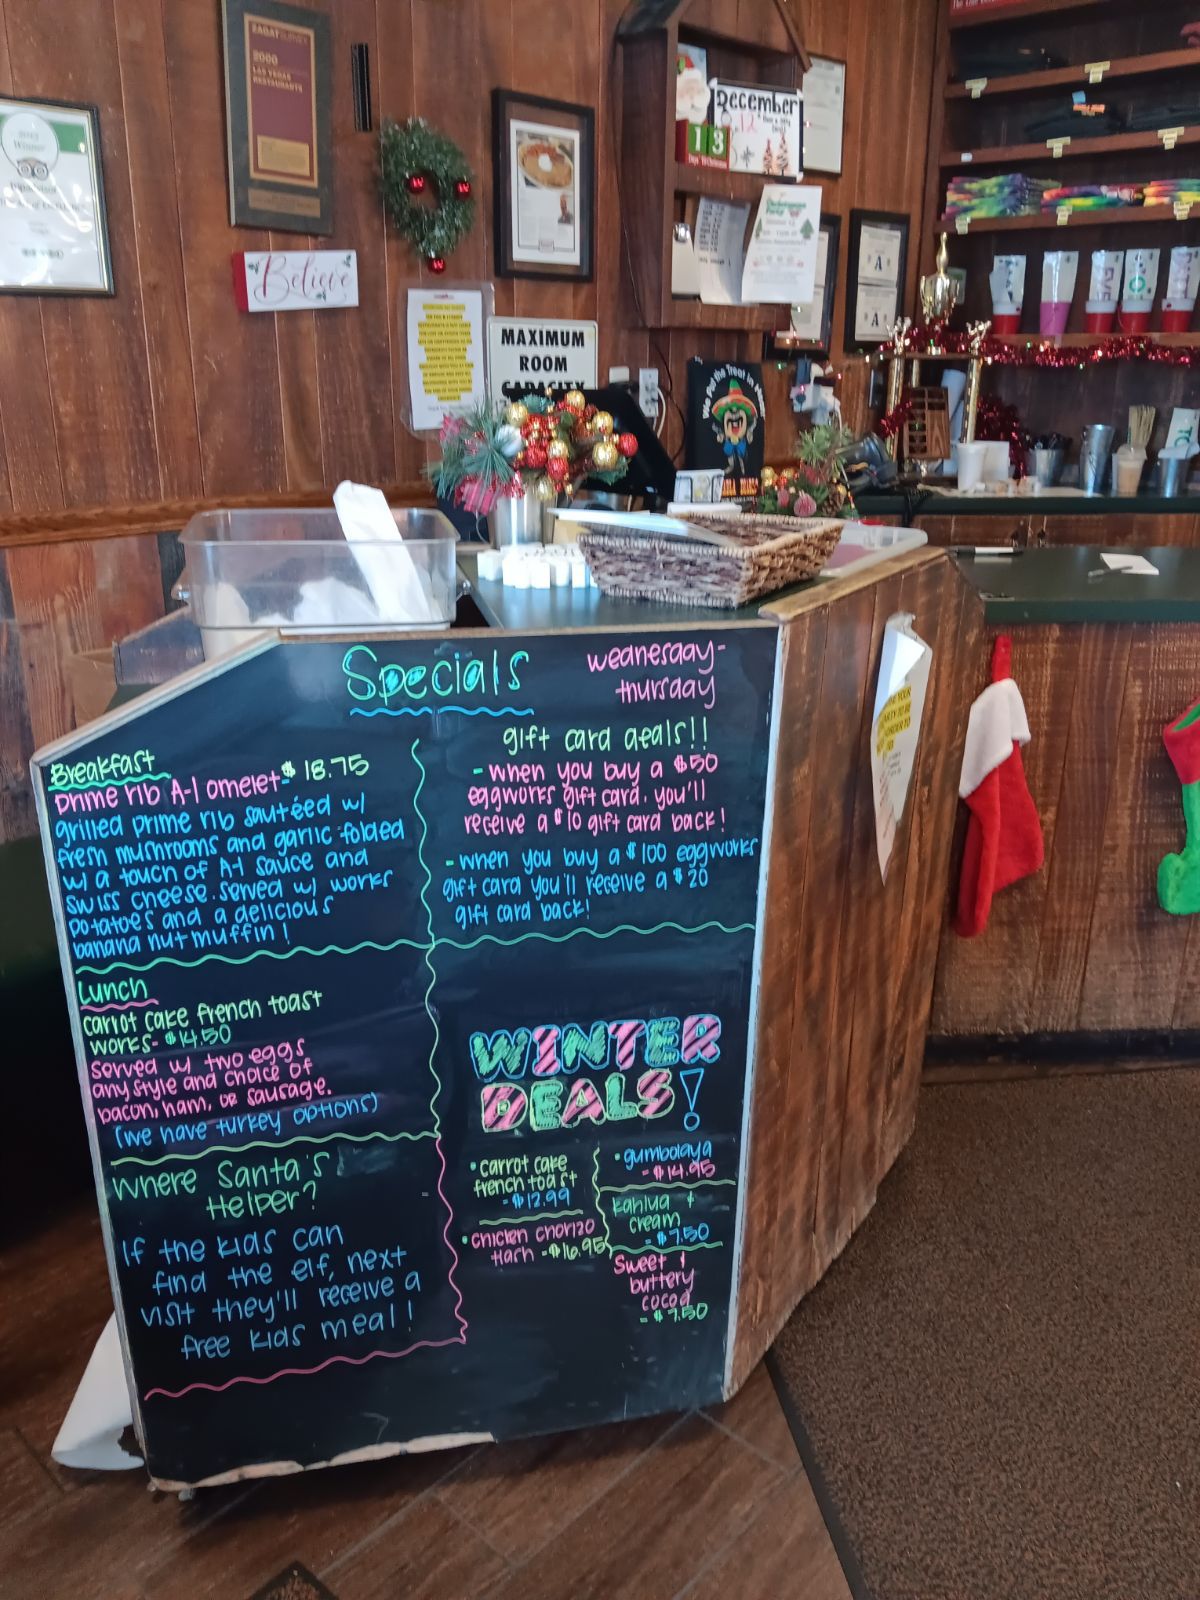 ZAGATSURVEY
2006
LAS VEGAS
RESTAURANTS
Winner
Believe
December
12
13
MAXIMUM
ROOM
CAPACITY
We Put the Treat in
A
A
Specials
wednesday-
thursday
Breakfast
prime rib A-1 omelet- $18.75
grilled prime rib sautéed w/
fresh mushrooms and garlic folded
w/ a touch of A-1 sauce and
swiss cheese. served w/ works
potatoes and a delicious
banana nut muffin!
gift card deals!!
- when you buy a $50
eggworks gift card, you'll
receive a $10 gift card back!
- when you buy a $100 eggworks
gift card you'll receive a $20
gift card back!
Lunch
carrot cake french toast
works- $14.50
served w/ two eggs
any style and choice of
bacon, ham, or sausage.
(we have turkey options)
Where Santa's
Helper?
If the kids can
find the elf, next
visit they'll receive a
free kids meal!
WINTER
DEALS!
• carrot cake
french toast
- $12.99
• chicken chorizo
hash - $16.95
• gumbolaya
- $14.95
kahlua &
cream
- $7.50
Sweet &
buttery
cocoa
- $7.50